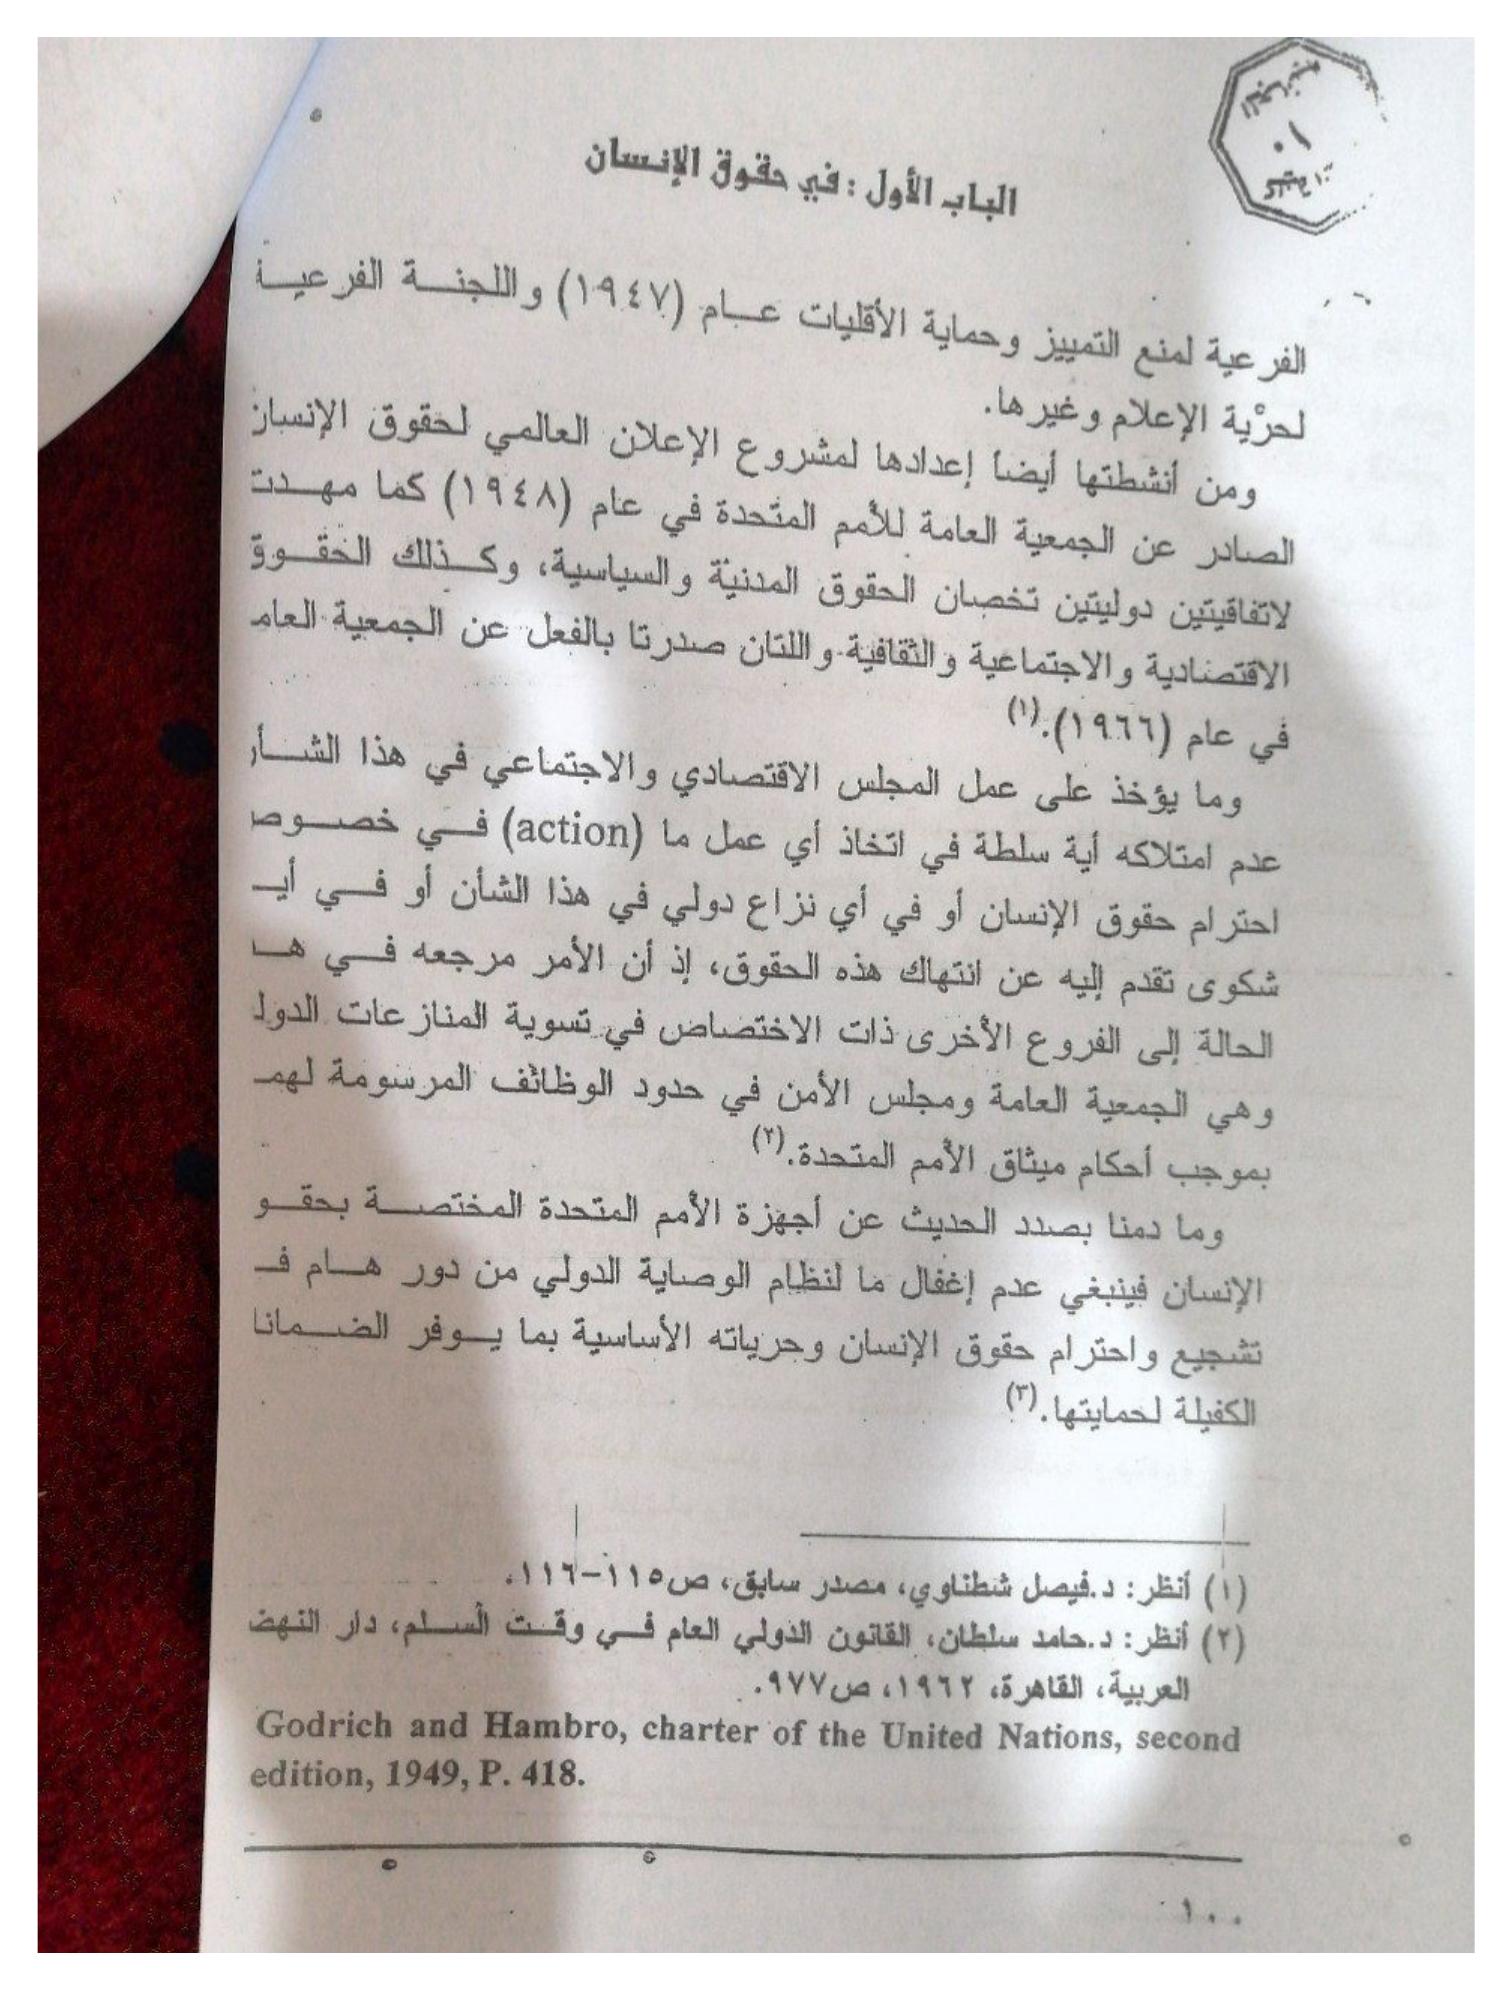 الباب الأول: في حقوق الإنسان
الفرعية لمنع التمييز وحماية الأقليات عام (١٩٤٧) واللجنة الفرعية
لحرية الإعلام وغيرها.
ومن أنشطتها أيضاً إعدادها لمشروع الإعلان العالمي لحقوق الإنسان
الصادر عن الجمعية العامة للأمم المتحدة في عام (١٩٤٨) كما مهدت
لاتفاقيتين دوليتين تخصان الحقوق المدنية والسياسية، وكذلك الحقوق
الاقتصادية والاجتماعية والثقافية واللتان صدرتا بالفعل عن الجمعية العام
في عام (١٩٦٦).(١)
وما يؤخذ على عمل المجلس الاقتصادي والاجتماعي في هذا الشأن
عدم امتلاكه أية سلطة في اتخاذ أي عمل ما (action) في خصوص
احترام حقوق الإنسان أو في أي نزاع دولي في هذا الشأن أو في أيـ
شكوى تقدم إليه عن انتهاك هذه الحقوق، إذ أن الأمر مرجعه في هـ
الحالة إلى الفروع الأخرى ذات الاختصاص في تسوية المنازعات الدول
وهي الجمعية العامة ومجلس الأمن في حدود الوظائف المرسومة لهم
بموجب أحكام ميثاق الأمم المتحدة.(٢)
وما دمنا بصدد الحديث عن أجهزة الأمم المتحدة المختصة بحقو
الإنسان فينبغي عدم إغفال ما لنظام الوصاية الدولي من دور هام فـ
تشجيع واحترام حقوق الإنسان وحرياته الأساسية بما يوفر الضمانا
الكفيلة لحمايتها.(٣)
(١) أنظر: د.فيصل شطناوي، مصدر سابق، ص١١٥-١١٦.
(٢) أنظر: د.حامد سلطان، القانون الدولي العام في وقت السلم، دار النهض
العربية، القاهرة، ١٩٦٢، ص٩٧٧.
Godrich and Hambro, charter of the United Nations, second
edition, 1949, P. 418.
١٠٠